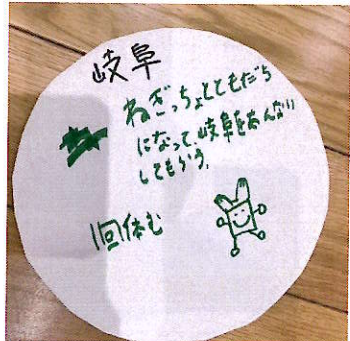 岐阜
ねぎっちょとともだち
になって、岐阜をあんない
してもらう。
1回休む